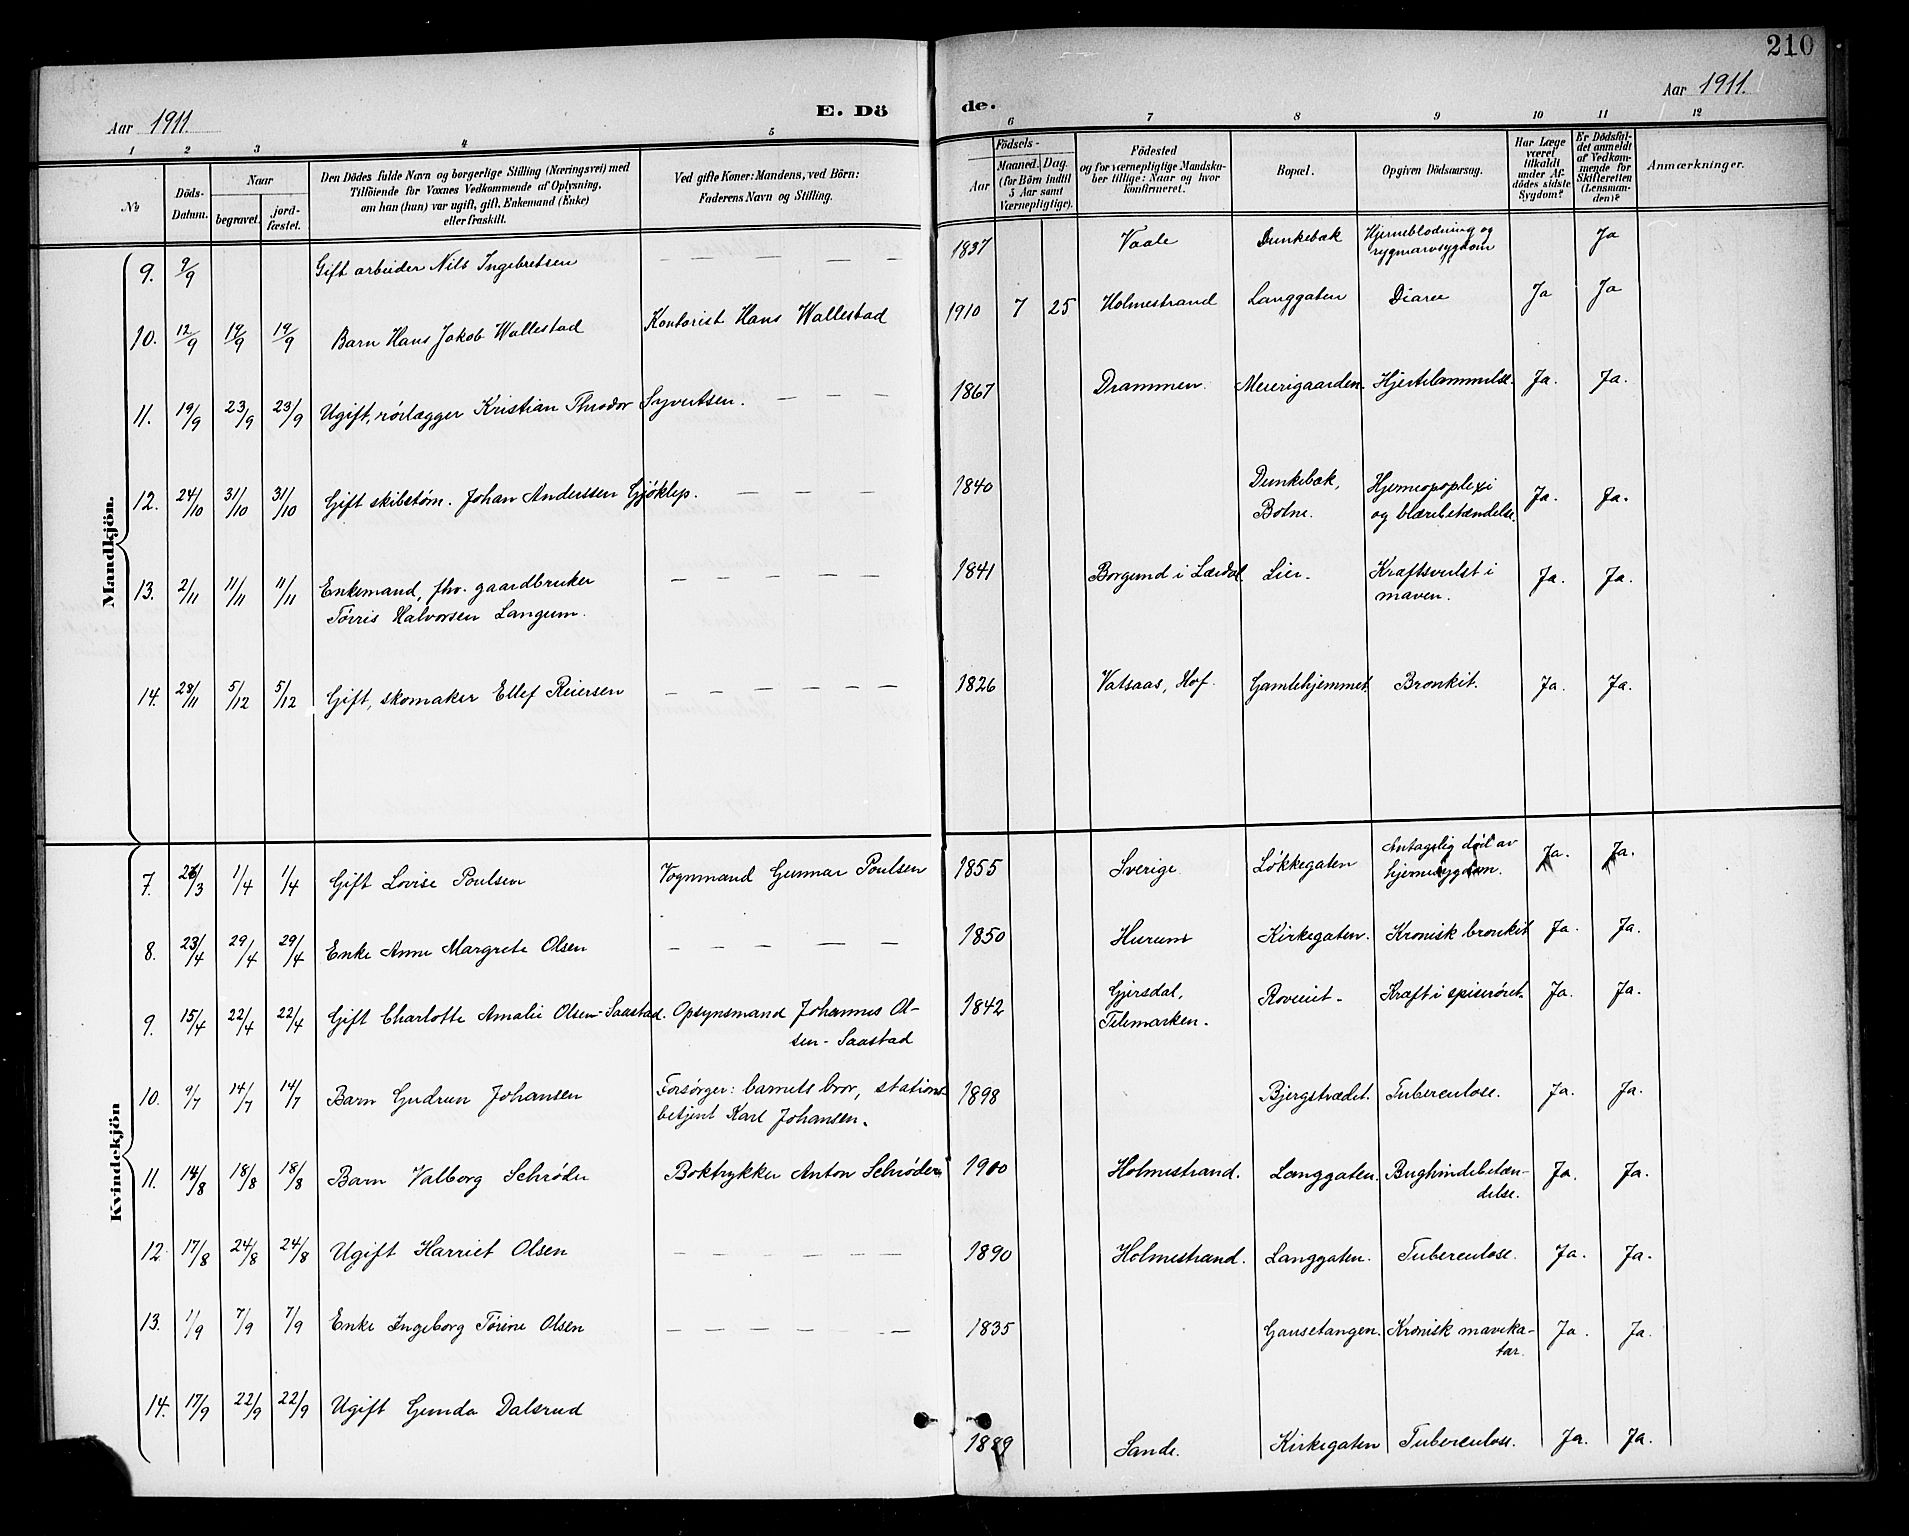 210
Aar 1911.
E. Dö
de.
Aar 1911.
1 2 3 4 5 6 7 8 9 10 11 12
No
Döds-
Datum.
Naar
begravet.
jord-
fæstet.
Den Dödes fulde Navn og borgerlige Stilling (Næringsvei) med
Tilföiende for Voxnes Vedkommende af Oplysning,
om han (hun) var ugift, gift, Enkemand (Enke)
eller fraskilt.
Ved gifte Koner: Mandens, ved Börn:
Faderens Navn og Stilling.
Födsels-
Aar
Maaned. Dag.
(for Börn indtil
5 Aar samt
Værnepligtige).
Födested
og for værnepligtige Mandska-
ber tillige: Naar og hvor
konfirmeret.
Bopæl.
Opgiven Dödsaarsag.
Har Læge
været
tilkaldt
under Af-
dödes sidste
Sygdom?
Er Dödsfal-
det anmeldt
af Vedkom-
mende for
Skifteretten
(Lensman-
den)?
Anmærkninger.
Mandkjön.
9. 9/9 Gift arbeider Nils Ingebretsen — — — — — 1837 Vaale Dunkebæk Hjerneblødning og
rygmarvsygdom Ja
10. 12/9 19/9 19/9 Barn Hans Jakob Wallestad Kontorist Hans Wallestad 1910 7 25 Holmestrand Langgaten Diaree Ja Ja
11. 19/9 23/9 23/9 Ugift, rørlægger Kristian Theodor Syvertsen. — — — 1867 Drammen. Meierigaarden. Hjertelammelse. Ja. Ja.
12. 24/10 31/10 31/10 Gift skibstøm. Johan Anderssen Gjøklep. — — — — 1840 Dunkebæk,
Botne. Hjerneapoplexi
og blærebetændelse. Ja. Ja.
13. 2/11 11/11 11/11 Enkemand, fhv. gaardbruker
Tørris Halvorsen Langum. — — — — — — 1841 Borgund i Lærdal Lier. Kræftsvulst i
maven. Ja. Ja.
14. 28/11 5/12 5/12 Gift, skomaker Ellef Reiersen — — — — — — 1826 Vatsaas, Hof. Gamlehjemmet. Bronkit. Ja. Ja.
Kvindekjön
7. 26/3 1/4 1/4 Gift Lovise Poulsen Vognmand Gunnar Poulsen 1855 Sverige Løkkegaten Antagelig død av
hjernesygdom. Ja. Ja.
8. 23/4 29/4 29/4 Enke Anne Margrete Olsen — — — — — 1850 Hurum Kirkegaten. Kronisk bronkit Ja. Ja.
9. 15/4 22/4 22/4 Gift Charlotte Amalie Olsen-Saastad. Opsynsmand Johannes Ol-
sen-Saastad 1842 Gjersdal,
Telemarken. Roveiet. Kræft i spiserøret. Ja. Ja.
10. 9/7 14/7 14/7 Barn Gudrun Johansen Forsørger: barnets bror, stations-
betjent Karl Johansen. 1898 Bjergstrædet. Tuberculose. Ja. Ja.
11. 14/8 18/8 18/8 Barn Valborg Schrøder Boktrykker Anton Schrøder 1900 Holmestrand. Langgaten. Bughindebetæn-
delse. Ja. Ja.
12. 17/8 24/8 24/8 Ugift Harriet Olsen — — — — — 1890 Holmestrand. Langgaten. Tuberculose. Ja. Ja.
13. 1/9 7/9 7/9 Enke Ingeborg Tørine Olsen — — — — — — 1835 Gausetangen. Kronisk maveka-
tar. Ja. Ja.
14. 17/9 22/9 22/9 Ugift Gunda Dalsrud 1889 Sande. Kirkegaten Tuberculose. Ja. Ja.